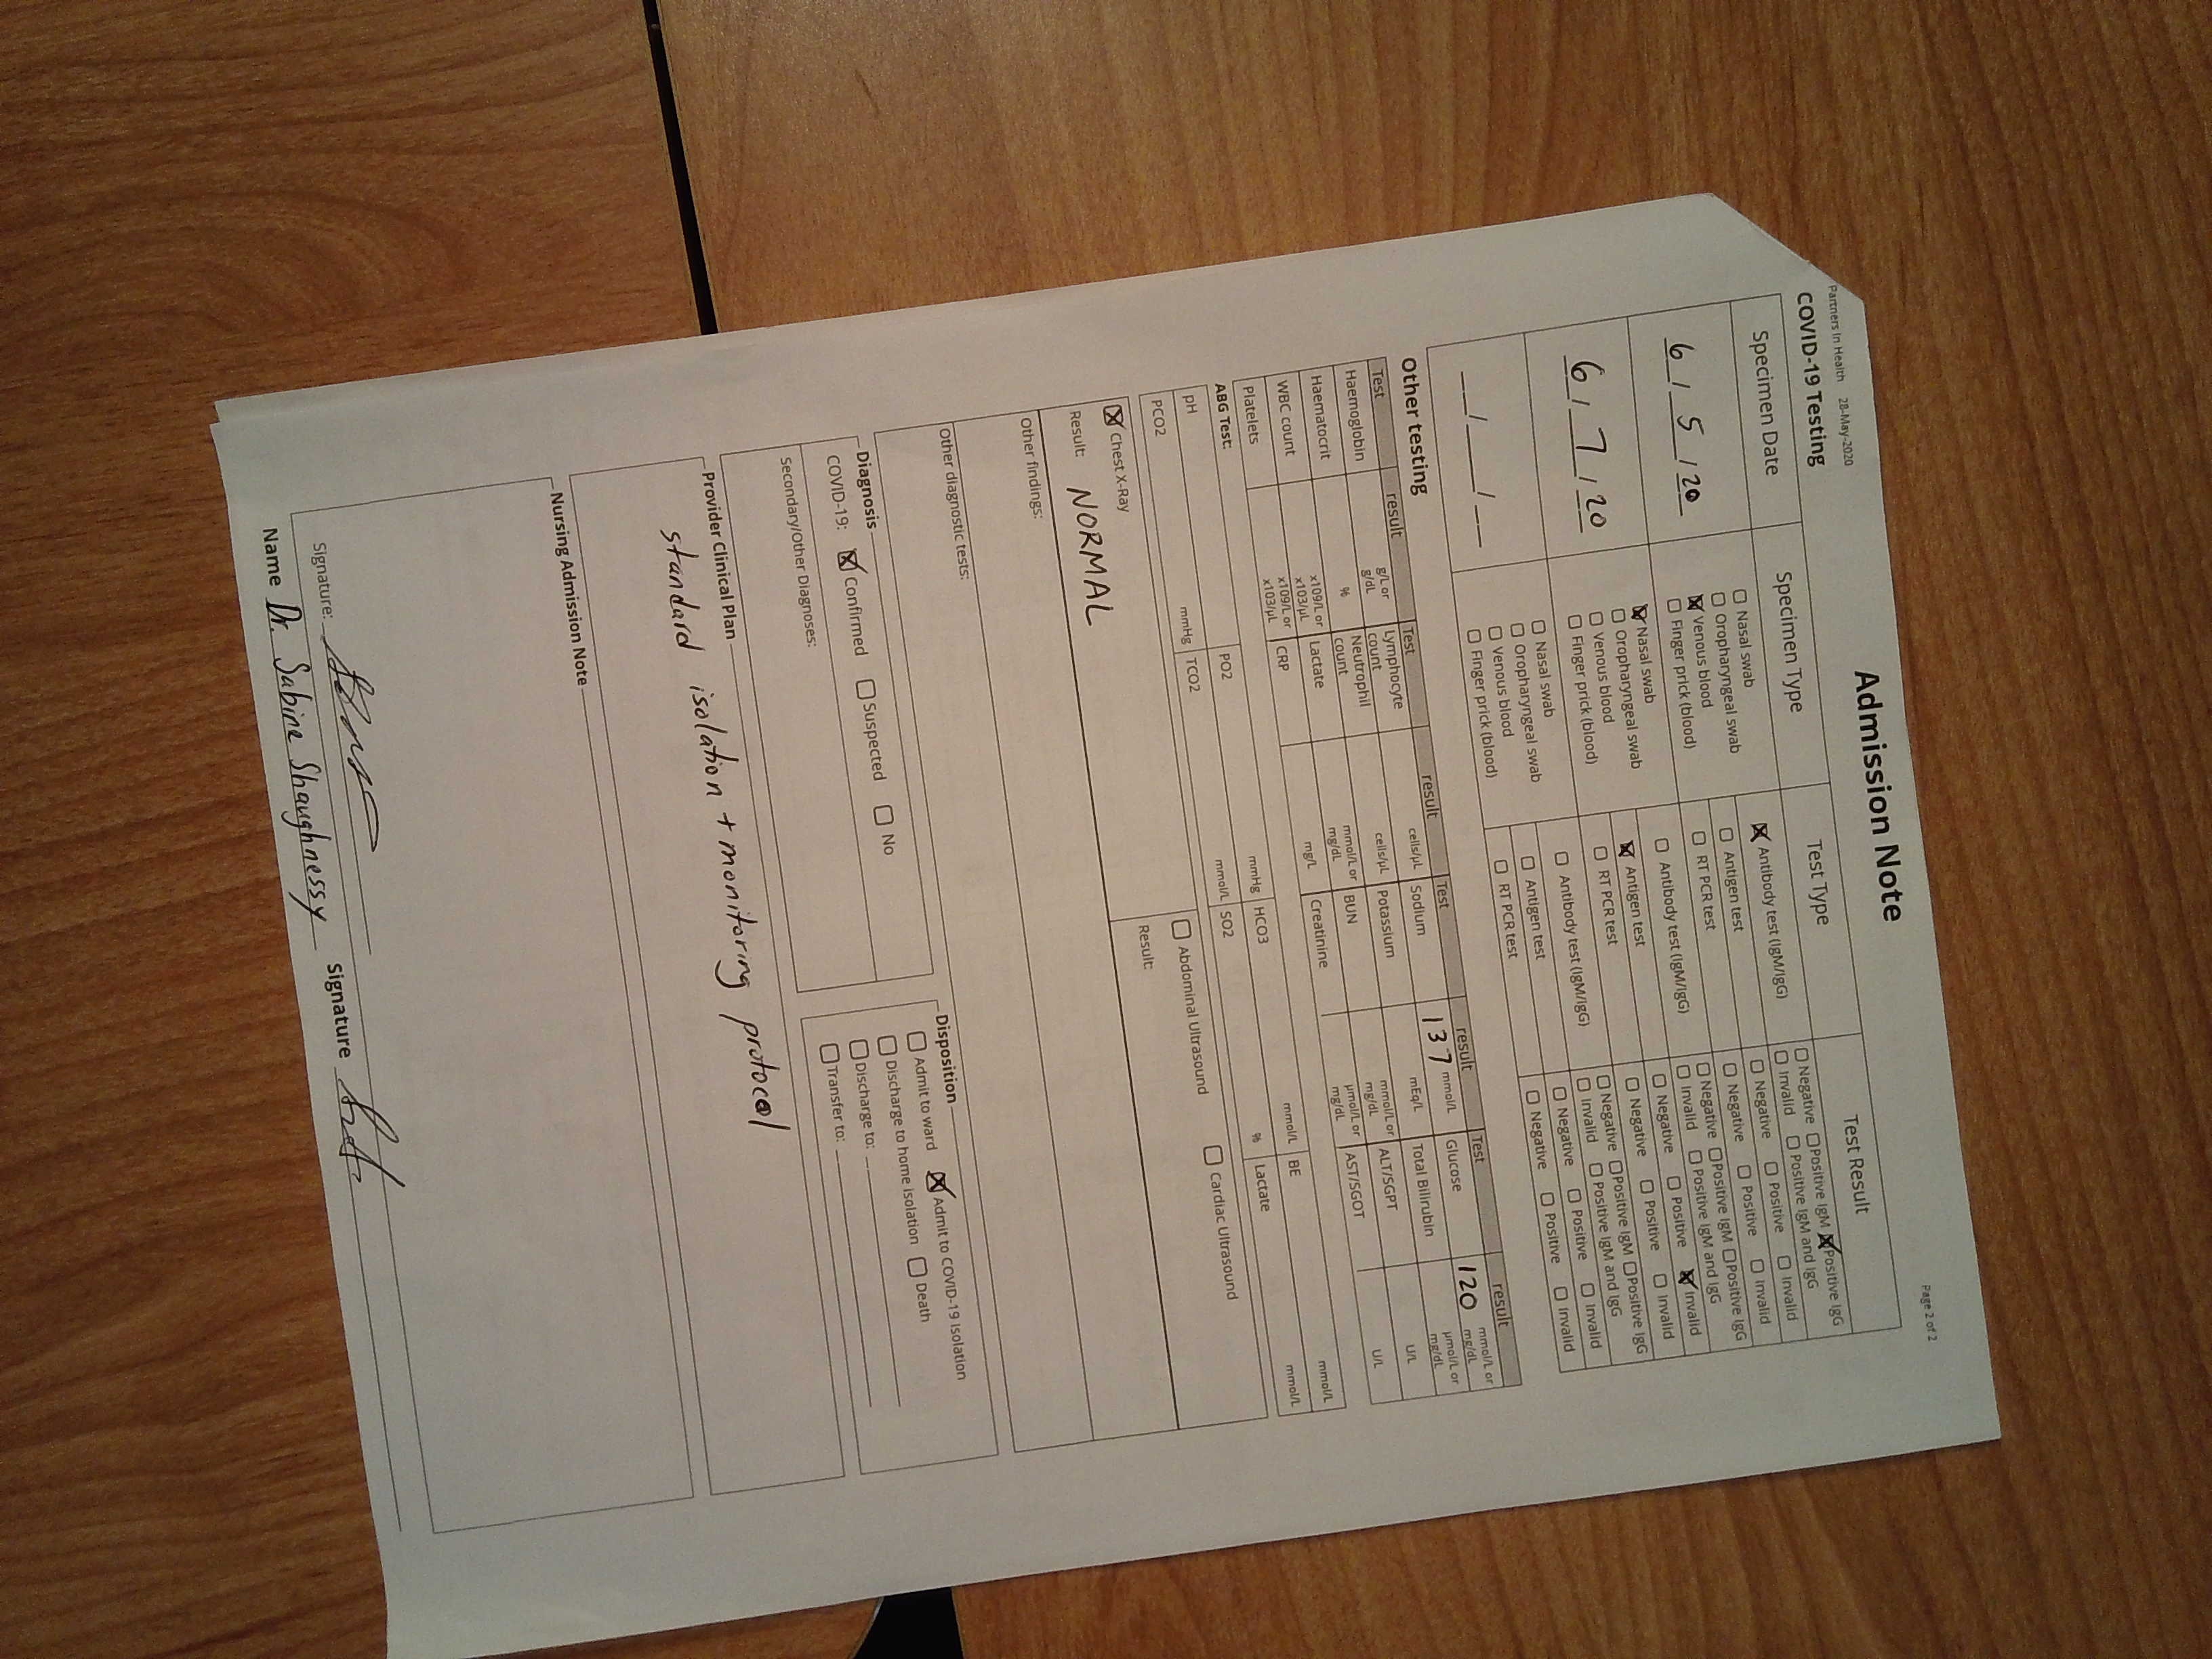 Partners In Health 28-May-2020
Page 2 of 2
Admission Note
COVID-19 Testing
Specimen Date Specimen Type Test Type Test Result
6 / 5 / 20
☐ Nasal swab
☐ Oropharyngeal swab
☒ Venous blood
☐ Finger prick (blood)
☒ Antibody test (IgM/IgG)
☐ Antigen test
☐ RT PCR test
☐ Negative ☐ Positive IgM ☒ Positive IgG
☐ Invalid ☐ Positive IgM and IgG
☐ Negative ☐ Positive ☐ Invalid
☐ Negative ☐ Positive ☐ Invalid
6 / 7 / 20
☒ Nasal swab
☐ Oropharyngeal swab
☐ Venous blood
☐ Finger prick (blood)
☐ Antibody test (IgM/IgG)
☒ Antigen test
☐ RT PCR test
☐ Negative ☐ Positive IgM ☐ Positive IgG
☐ Invalid ☐ Positive IgM and IgG
☐ Negative ☐ Positive ☒ Invalid
☐ Negative ☐ Positive ☐ Invalid
__/__/__
☐ Nasal swab
☐ Oropharyngeal swab
☐ Venous blood
☐ Finger prick (blood)
☐ Antibody test (IgM/IgG)
☐ Antigen test
☐ RT PCR test
☐ Negative ☐ Positive IgM ☐ Positive IgG
☐ Invalid ☐ Positive IgM and IgG
☐ Negative ☐ Positive ☐ Invalid
☐ Negative ☐ Positive ☐ Invalid
Other testing
Test result Test result Test result Test result
Haemoglobin g/L or g/dL Lymphocyte count cells/µL Sodium 137 mmol/L Glucose 120 mmol/L or mg/dL
Haematocrit % Neutrophil count cells/µL Potassium mEq/L Total Bilirubin µmol/L or mg/dL
WBC count x109/L or x103/µL Lactate mmol/L or mg/dL BUN mmol/L or mg/dL ALT/SGPT U/L
Platelets x109/L or x103/µL CRP mg/L Creatinine µmol/L or mg/dL AST/SGOT U/L
ABG Test:
pH PO2 mmHg HCO3 mmol/L BE mmol/L
PCO2 mmHg TCO2 mmol/L SO2 % Lactate mmol/L
☒ Chest X-Ray ☐ Abdominal Ultrasound ☐ Cardiac Ultrasound
Result: NORMAL Result:
Other findings:
Other diagnostic tests:
Diagnosis
COVID-19: ☒ Confirmed ☐ Suspected ☐ No
Secondary/Other Diagnoses:
Disposition
☐ Admit to ward ☒ Admit to COVID-19 Isolation
☐ Discharge to home isolation ☐ Death
☐ Discharge to:
☐ Transfer to:
Provider Clinical Plan
standard isolation + monitoring protocol
Nursing Admission Note
Signature:
Name Dr. Sabine Shaughnessy Signature